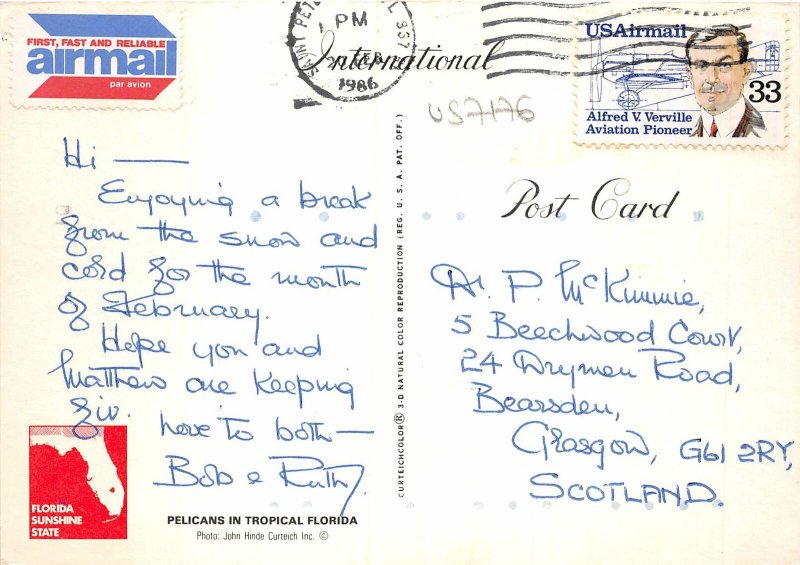 FIRST, FAST AND RELIABLE
airmail
par avion
PM
1986
International
USAirmail
33
Alfred V. Verville
Aviation Pioneer
US7176
Post Card
Hi —
Enjoying a break
from the snow and
cold for the month
of February.
Hope you and
Matthew are keeping
fit.
Love to both —
Bob & Ruth
CURTEICHCOLOR® 3-D NATURAL COLOR REPRODUCTION (REG. U. S. A. PAT. OFF.)
P. McKimmie,
5 Beechwood Court,
24 Drymen Road,
Bearsden,
Glasgow, G61 2RY,
SCOTLAND.
FLORIDA
SUNSHINE
STATE
PELICANS IN TROPICAL FLORIDA
Photo: John Hinde Curteich Inc. ©